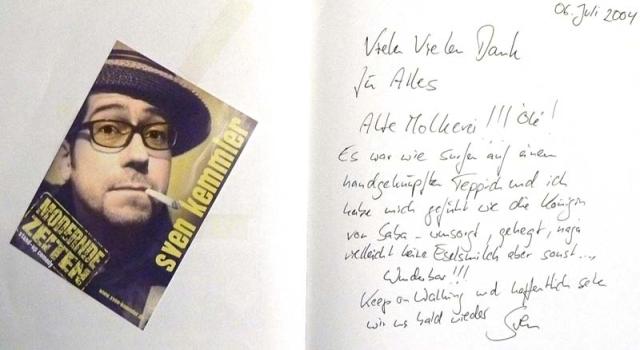 sven kemmler
MODERNDE
ZEITEN
stand-up comedy
06. Juli 2004
Vielen Vielen Dank
für Alles
Alte Molkerei !!! Olé!
Es war wie Surfen auf einem
handgeknüpften Teppich und ich
habe mich gefühlt wie die Königin
von Saba - umsorgt, gehegt, naja
vielleicht keine Eselsmilch aber sonst...,
Wunderbar!!!
Keep on Walking und hoffentlich sehen
wir uns bald wieder
Sven